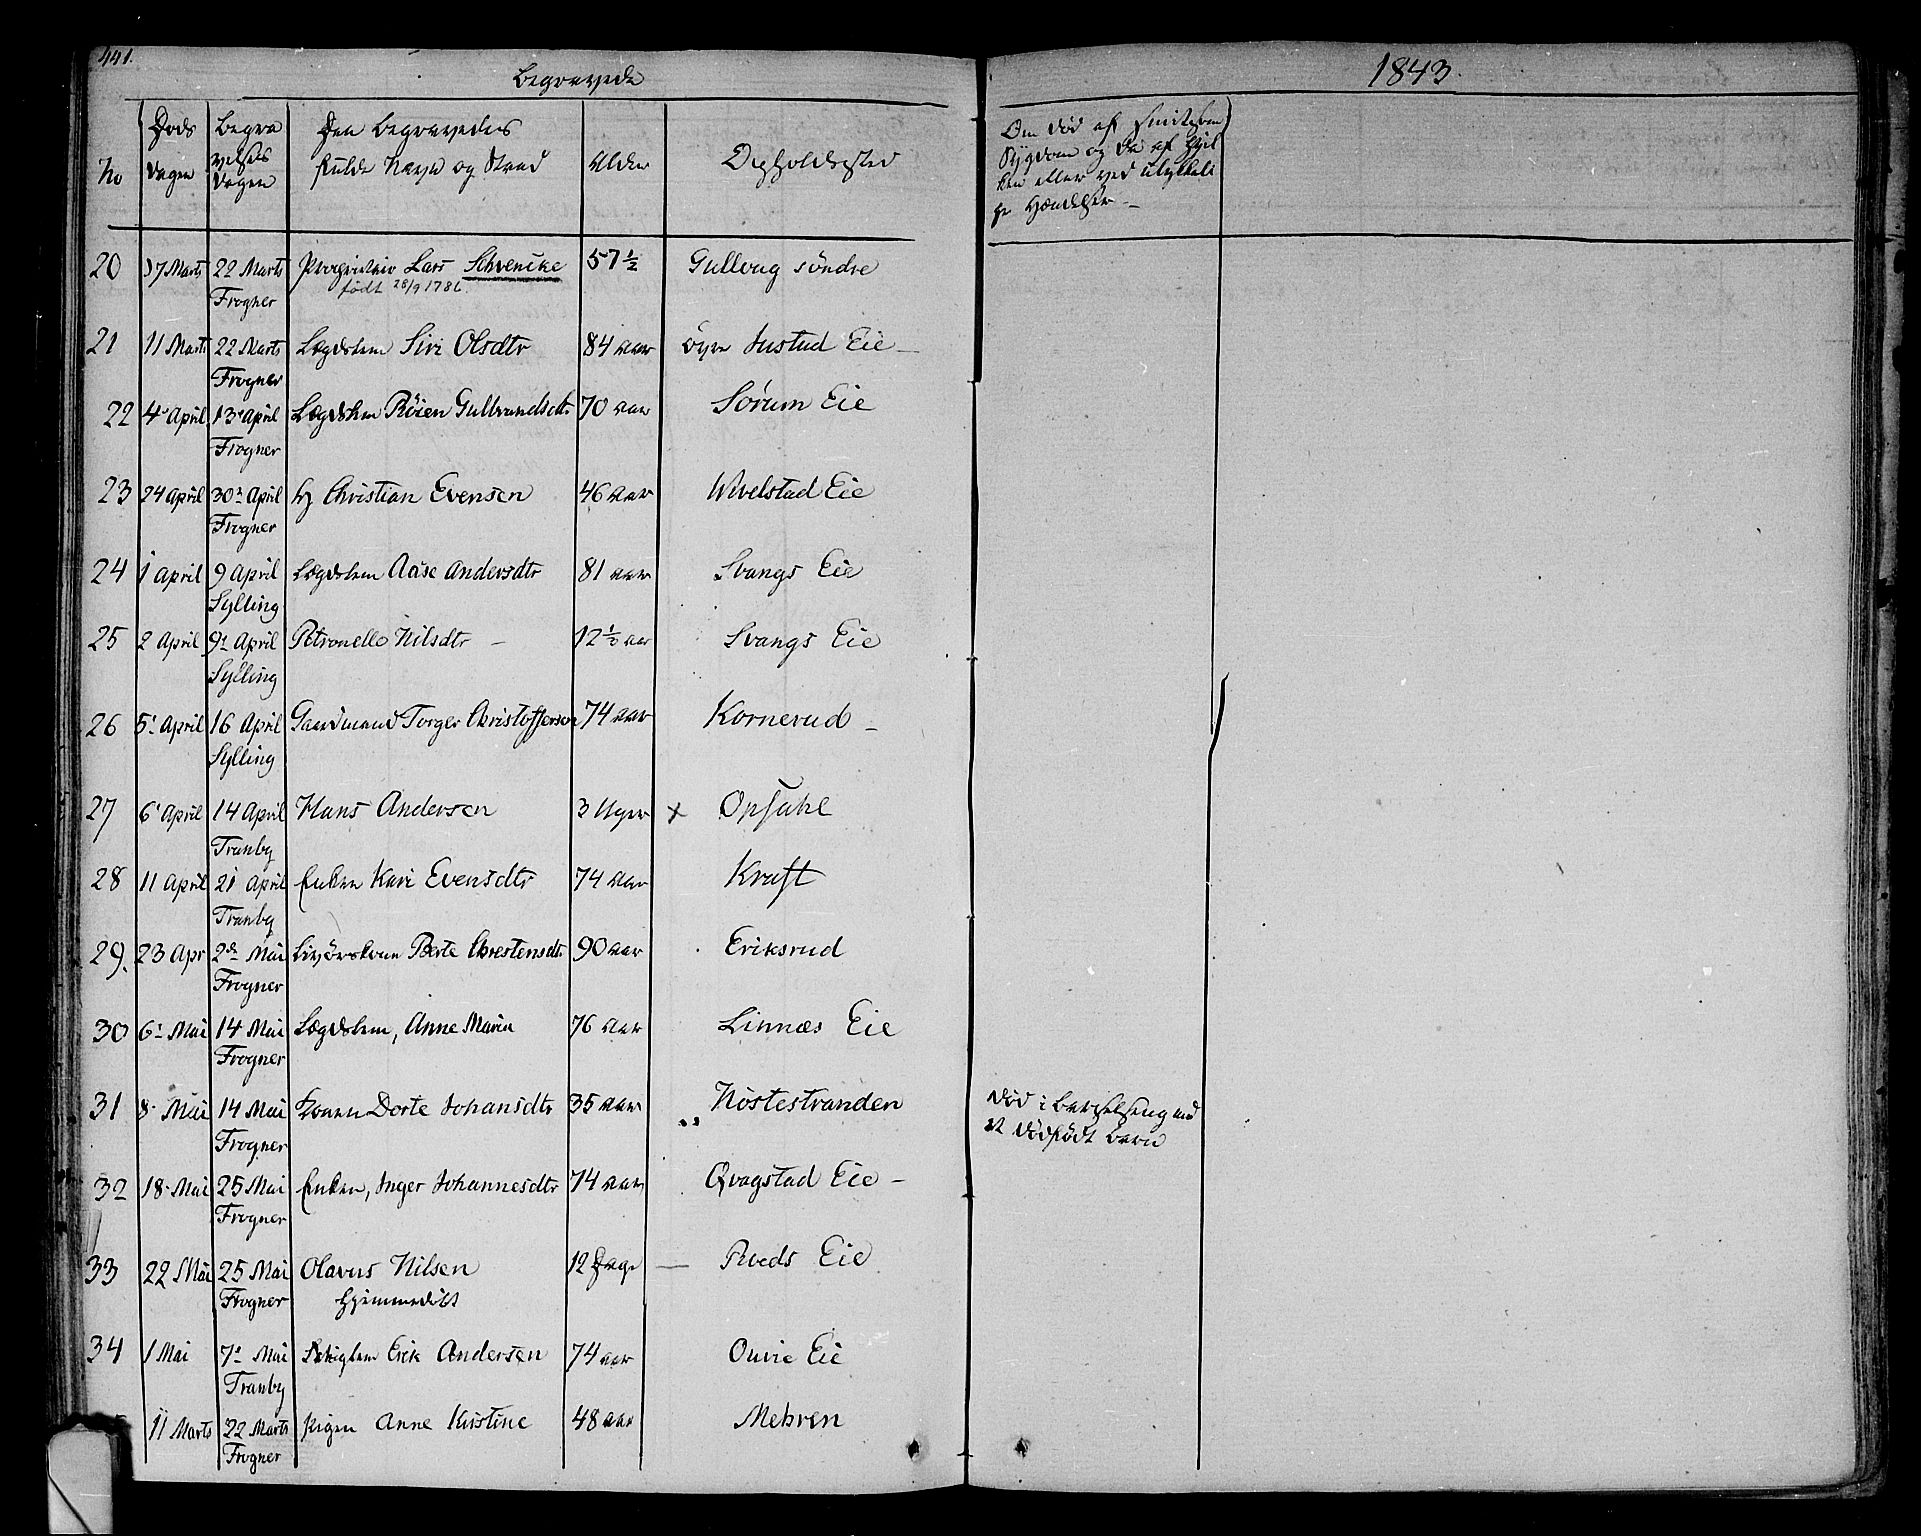 441.
Begravede
1843.
No
Døds Dagen
Begravelses Dagen
Den Begravedes fulde Navn og Stand
Alder
Opholdssted
Om død af smitsom
Sygdom og da af hvil
ken eller ved ulykkeli
ge Hændelser
20 17 Marts 22 Marts Proprietair Lars Schvencke 57 1/2 Gulloug söndre
Frogner født 28/9 1786.
21 11 Marts 22 Marts Lægdslem Siri Olsdtr 84 aar övre Justad Eie
Frogner
22 4 April 13 April Lægdslem Röien Gulbrandsdtr 70 aar Sørum Eie
Frogner
23 24 April 30 April Christian Evensen 46 aar Wivelstad Eie
Frogner
24 1 April 9 April Lægdslem Aase Andersdtr 81 aar Svangs Eie
Sylling
25 2 April 9 April Petronelle Nilsdtr 12 1/2 aar Svangs Eie
Sylling
26 5 April 16 April Gaardmand Torger Christoffersen 74 aar Kornerud
Sylling
27 6 April 14 April Hans Andersen 3 Uger x Opsahl
Tranby
28 11 April 21 April Enken Kari Evensdtr 74 aar Kraft
Tranby
29. 23 Apr 2den Mai Livørskone Berte Chrestensdtr 90 aar Eriksrud
Frogner
30 6 Mai 14 Mai Lægdslem, Anne Maria 76 aar Linnæs Eie
Frogner
31 8 Mai 14 Mai Konen Dorte Johansdtr 35 aar Nöstestranden død i Barselseng med
Frogner et dødfødt barn
32 18 Mai 25 Mai Enken, Inger Johannesdtr 74 aar Qvagstad Eie
Frogner
33 22 Mai 25 Mai Olavus Nilsen 12 Dage Roeds Eie
Frogner Hjemmedöbt
34 1 Mai 7 Mai Erik Andersen 74 aar Ouvie Eie
Tranby
11 Marts 22 Marts Pigen Anne Kistine 48 aar Mehren
Frogner